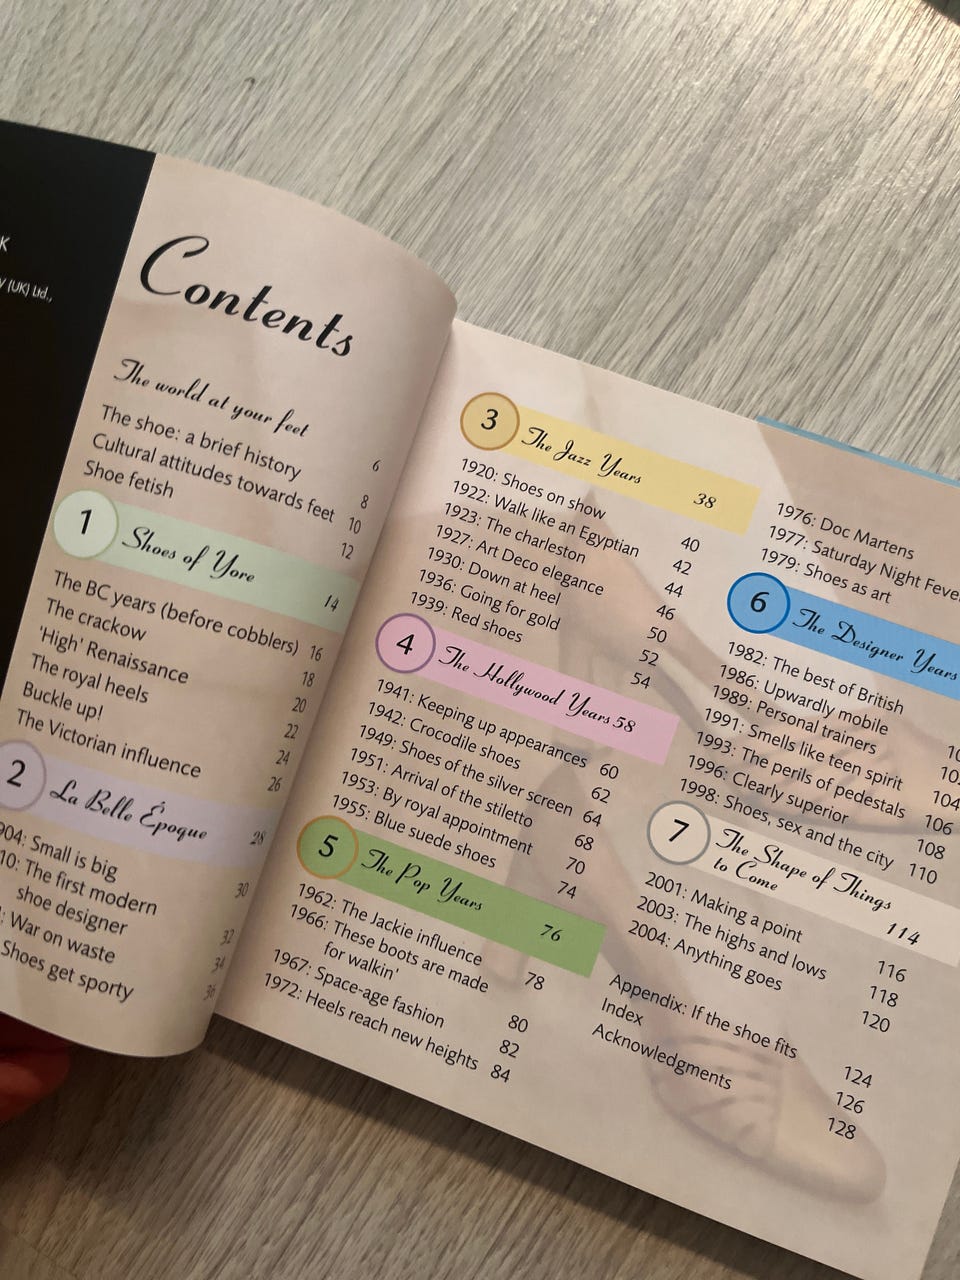 K
(UK) Ltd.,
Contents
The world at your feet 6
The shoe: a brief history 8
Cultural attitudes towards feet 10
Shoe fetish 12
1 Shoes of Yore 14
The BC years (before cobblers) 16
The crackow 18
'High' Renaissance 20
The royal heels 22
Buckle up! 24
The Victorian influence 26
2 La Belle Époque 28
904: Small is big 30
10: The first modern
shoe designer 32
: War on waste 34
Shoes get sporty 36
3 The Jazz Years 38
1920: Shoes on show 40
1922: Walk like an Egyptian 42
1923: The charleston 44
1927: Art Deco elegance 46
1930: Down at heel 50
1936: Going for gold 52
1939: Red shoes 54
4 The Hollywood Years 58
1941: Keeping up appearances 60
1942: Crocodile shoes 62
1949: Shoes of the silver screen 64
1951: Arrival of the stiletto 68
1953: By royal appointment 70
1955: Blue suede shoes 74
5 The Pop Years 76
1962: The Jackie influence 78
1966: These boots are made
for walkin' 80
1967: Space-age fashion 82
1972: Heels reach new heights 84
1976: Doc Martens
1977: Saturday Night Feve
1979: Shoes as art
6 The Designer Years
1982: The best of British
1986: Upwardly mobile
1989: Personal trainers
1991: Smells like teen spirit 104
1993: The perils of pedestals 106
1996: Clearly superior 108
1998: Shoes, sex and the city 110
7 The Shape of Things
to Come 114
2001: Making a point 116
2003: The highs and lows 118
2004: Anything goes 120
Appendix: If the shoe fits 124
Index 126
Acknowledgments 128